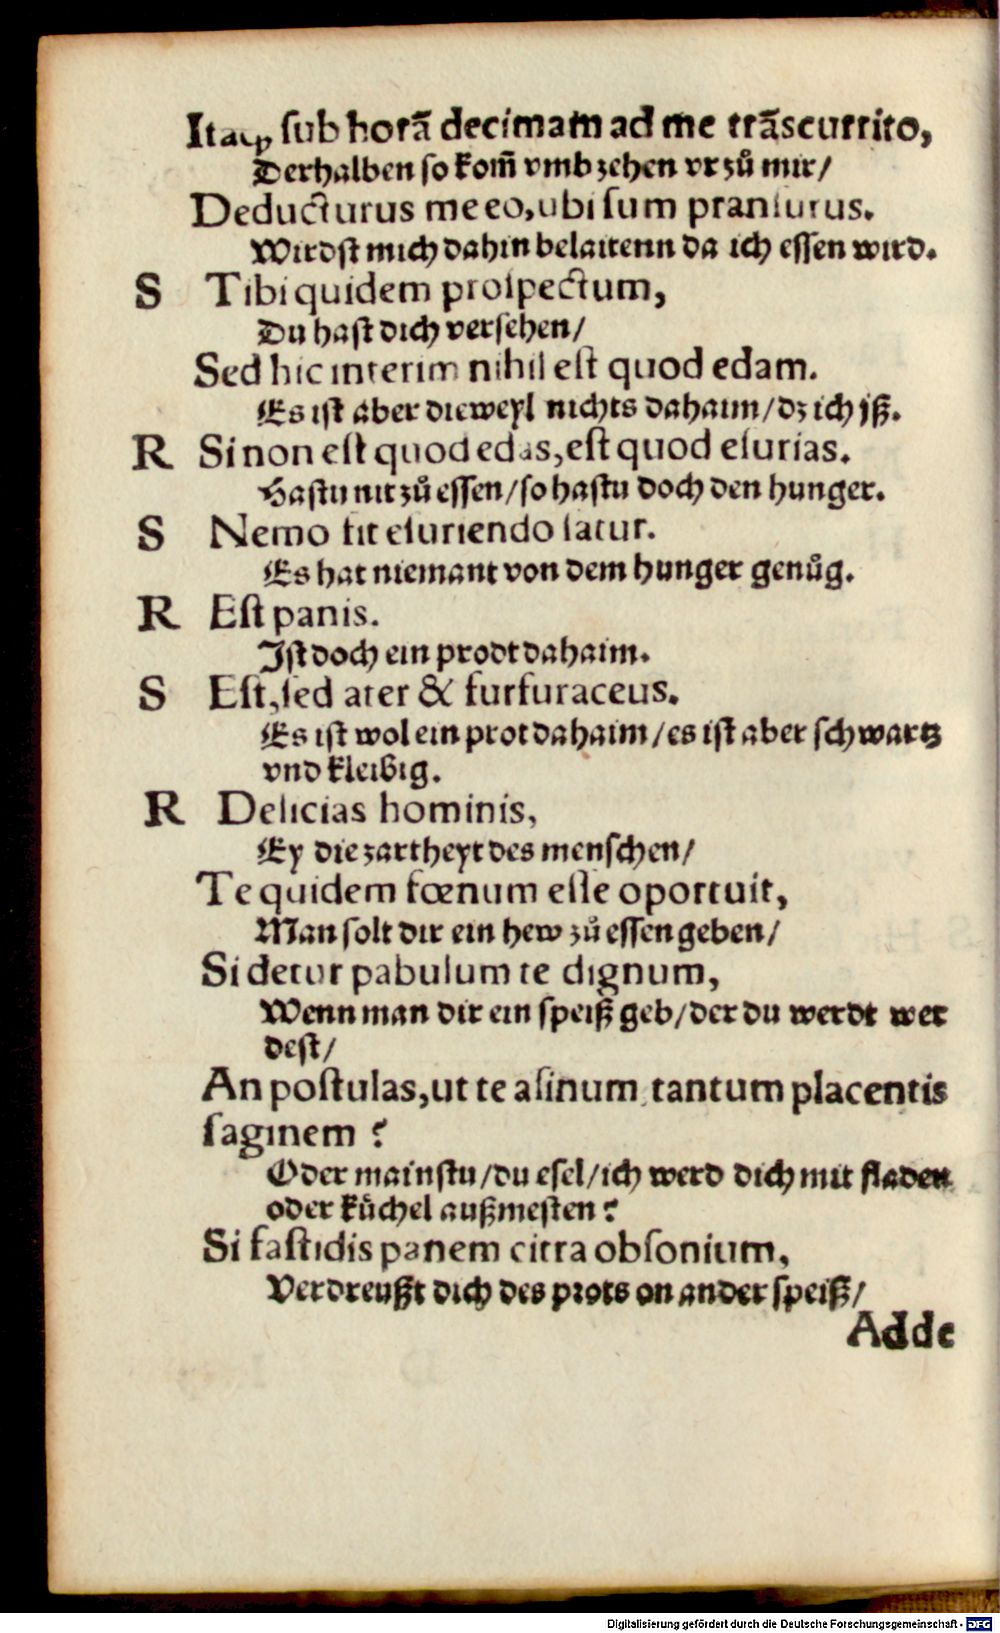 Itaq; ſub horã decimam ad me trãscurrito,
Derhalben so kom̃ vmb zehen vr zů mir/
Deducturus me eo, ubi ſum pranſurus.
Wirdst mich dahin belaitenn da ich essen wird.
S Tibi quidem proſpectum,
Du hast dich versehen/
Sed hic interim nihil eſt quod edam.
Es ist aber dieweyl nichts dahaim/dz ich jß.
R Si non eſt quod edas, eſt quod eſurias.
Hastu nit zů essen/so hastu doch den hunger.
S Nemo fit eſuriendo ſatur.
Es hat niemant von dem hunger genůg.
R Eſt panis.
Ist doch ein prodt dahaim.
S Eſt, ſed ater & furfuraceus.
Es ist wol ein prot dahaim/es ist aber schwartz
vnd kleibig.
R Delicias hominis,
Ey die zartheyt des menschen/
Te quidem fœnum eſſe oportuit,
Man solt dir ein hew zů essen geben/
Si detur pabulum te dignum,
Wenn man dir ein speiß geb/der du werdt wer
dest/
An poſtulas, ut te aſinum tantum placentis
ſaginem ?
Oder mainstu/du esel/ich werd dich mit fladen
oder kůchel außmesten?
Si faſtidis panem citra obſonium,
Verdreußt dich des prots on ander speiß/
Adde
Digitalisierung gefördert durch die Deutsche Forschungsgemeinschaft - DFG